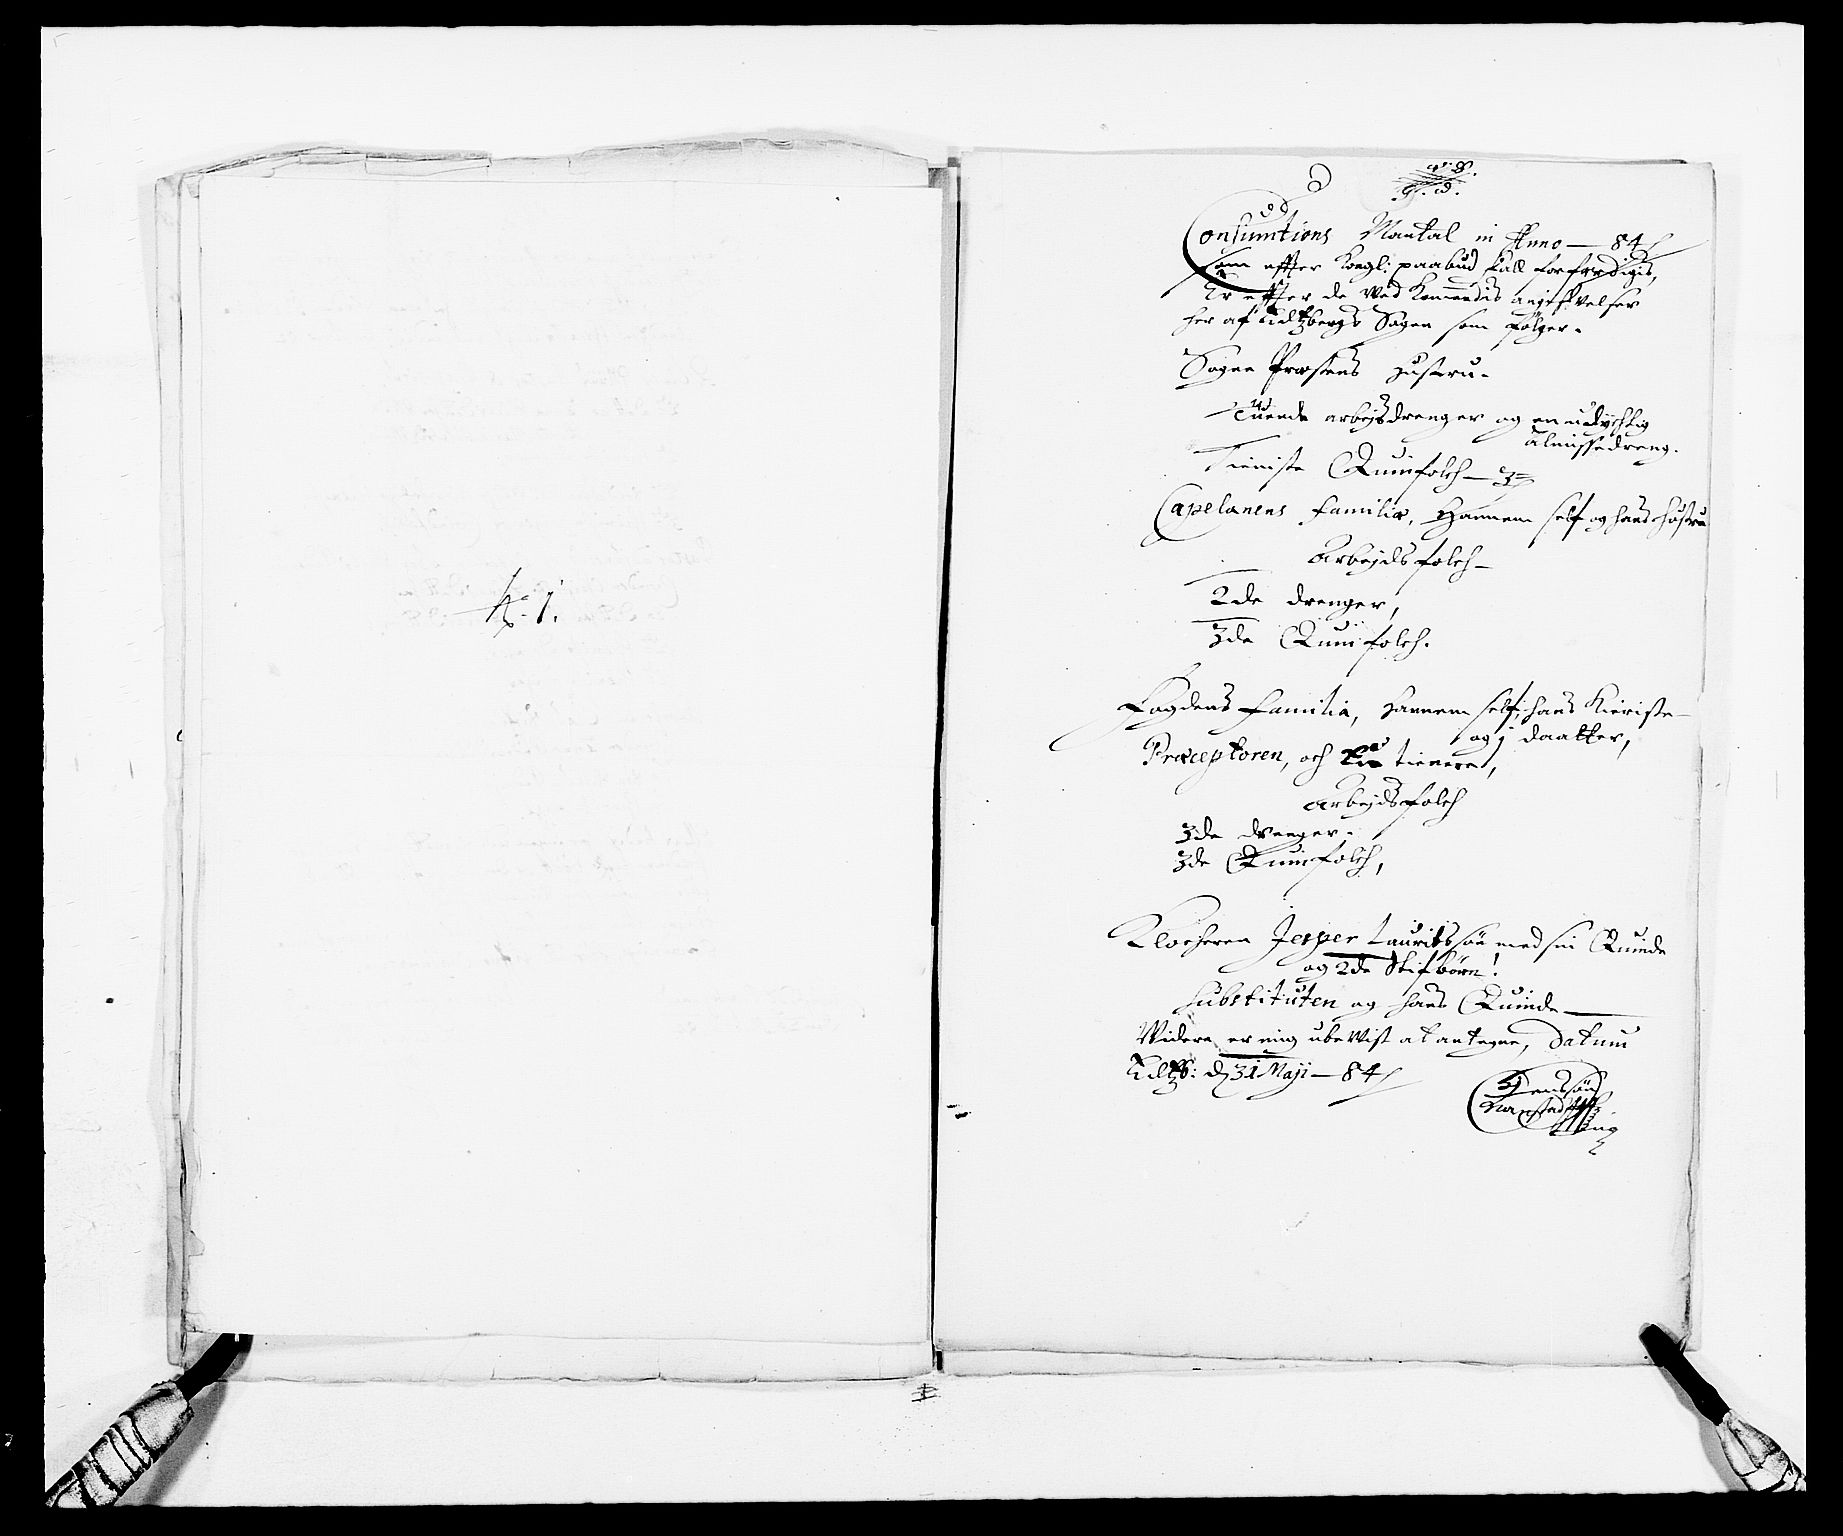 N: 1.
Consumtions Mantal in Anno — 84
som effter Kongl: paabud skall forfærdigis,
Er effter de ved kommendis angifvelser
her af Sogen som følger.
Sogne Præstens Hustru.
Tuende arbejdsdrenger og en udychtig
almissedreng.
Tieniste Quinfolch — 3
Capelanens familie, Hannem self og hans hustru
Arbejdsfolch —
2de drenger,
3de Quinfolch.
Fogdens familia, Hannem self, hans Kieriste —
og 1 daatter,
Præceptoren, och tienere,
Arbejdsfolch
3de drenger.
3de Quinfolch,
Klocheren Jesper Lauritssøn med sin Quinde
og 2de Stifbørn!
Substituten og hans Quinde —
Widere er mig ubevist at antegne, Datum
d 31 Maji — 84